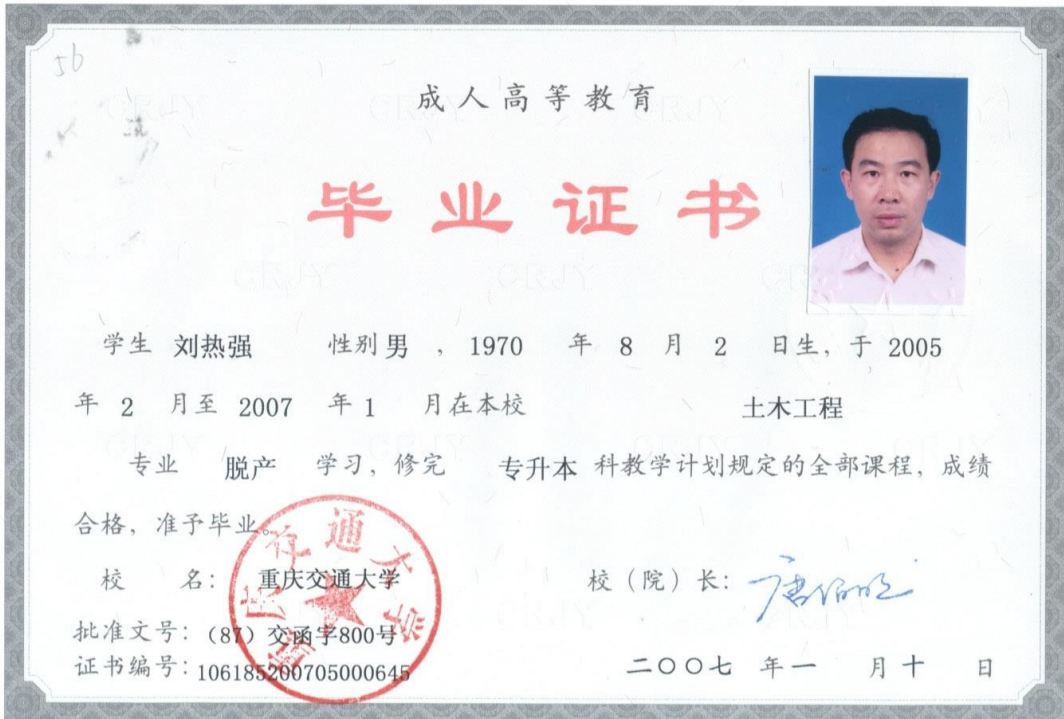 56
成人高等教育
毕业证书
学生 刘热强 性别 男 ，1970 年 8 月 2 日生，于 2005
年 2 月至 2007 年 1 月在本校 土木工程
专业 脱产 学习，修完 专升本 科教学计划规定的全部课程，成绩
合格，准予毕业。
校 名： 重庆交通大学 校（院）长： 唐伯明
批准文号：（87）交函字800号
证书编号：106185200705000645 二〇〇七 年 一 月 十 日
重庆交通大学